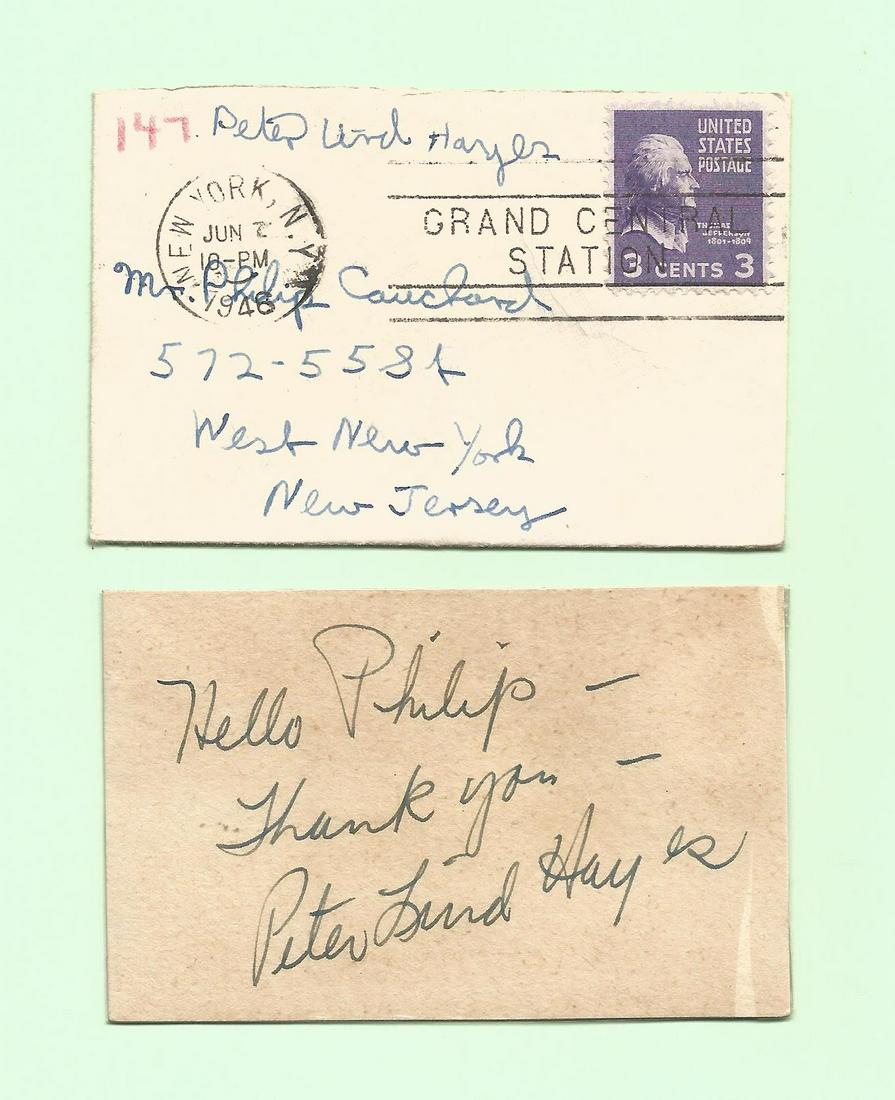 147 Peter Lind Hayes
UNITED
STATES
POSTAGE
THOMAS
JEFFERSON
1801-1809
3 CENTS 3
NEW YORK, N.Y.
JUN
10-PM
1946
GRAND CENTRAL
STATION
Mr. Philip Cauchard
572-55St
West New York
New Jersey
Hello Philip —
Thank you —
Peter Lind Hayes